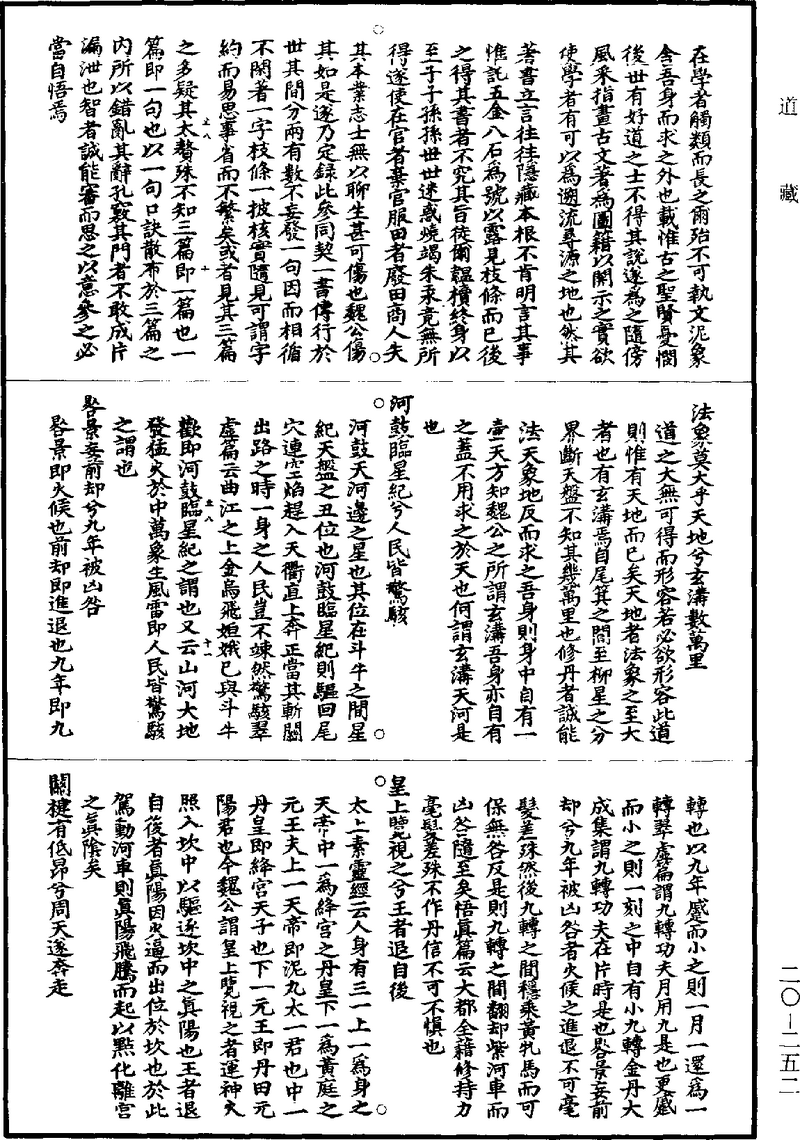 道藏
在學者觸類而長之爾殆不可執文泥象
舍吾身而求之外也載惟古之聖賢憂憫
後世有好道之士不得其說遂為之隨傍
風采指畫古文著為圖籍以開示之實欲
使學者有可以為遡流尋源之地也然其
著書立言往往隱藏本根不肯明言其事
惟託五金八石為號以露見枝條而已後
之得其書者不究其旨徒爾韞櫝終身以
至子子孫孫世世迷惑燒竭朱汞竟無所
得遂使在官者棄官服田者廢田商人失
其本業志士無以聊生甚可傷也魏公傷
其如是遂乃定錄此參同契一書傳行於
世其間分兩有數不妄發一句因而相循
不閑著一字枝條一披核實隨見可謂字
約而易思事省而不繁矣或者見其三篇
之多疑其太贅殊不知三篇即一篇也一
篇即一句也以一句口訣散布於三篇之
內所以錯亂其辭孔竅其門者不敢成片
漏泄也智者誠能審而思之以意參之必
當自悟焉
法象莫大乎天地兮玄溝數萬里
道之大無可得而形容若必欲形容此道
則惟有天地而已矣天地者法象之至大
者也有玄溝焉自尾箕之間至柳星之分
界斷天盤不知其幾萬里也修丹者誠能
法天象地反而求之吾身則身中自有一
壺天方知魏公之所謂玄溝吾身亦自有
之蓋不用求之於天也何謂玄溝天河是
也
河鼓臨星紀兮人民皆驚駭
河鼓天河邊之星也其位在斗牛之間星
紀天盤之丑位也河鼓臨星紀則驅回尾
穴連空焰趕入天衢直上奔正當其斬關
出路之時一身之人民豈不竦然驚駭翠
虛篇云曲江之上金烏飛姮娥已與斗牛
歡即河鼓臨星紀之謂也又云山河大地
發猛火於中萬象生風雷即人民皆驚駭
之謂也
晷景妄前却兮九年被凶咎
晷景即火候也前却即進退也九年即九
轉也以九年蹙而小之則一月一還為一
轉翠虛篇謂九轉功夫月用九是也更蹙
而小之則一刻之中自有小九轉金丹大
成集謂九轉功夫在片時是也晷景妄前
却兮九年被凶咎者火候之進退不可毫
髮差殊然後九轉之間穩乘黃牝馬而可
保無咎反是則九轉之間翻却紫河車而
凶咎隨至矣悟真篇云大都全藉修持力
毫髮差殊不作丹信不可不慎也
皇上覽視之兮王者退自後
太上素靈經云人身有三一上一為身之
天帝中一為絳宮之丹皇下一為黃庭之
元王夫上一天帝即泥丸太一君也中一
丹皇即絳宮天子也下一元王即丹田元
陽君也今魏公謂皇上覽視之者運神火
照入坎中以驅逐坎中之真陽也王者退
自後者真陽因火逼而出位於坎也於此
駕動河車則真陽飛騰而起以點化離宮
之真陰矣
關楗有低昂兮周天遂奔走
二〇-二五二